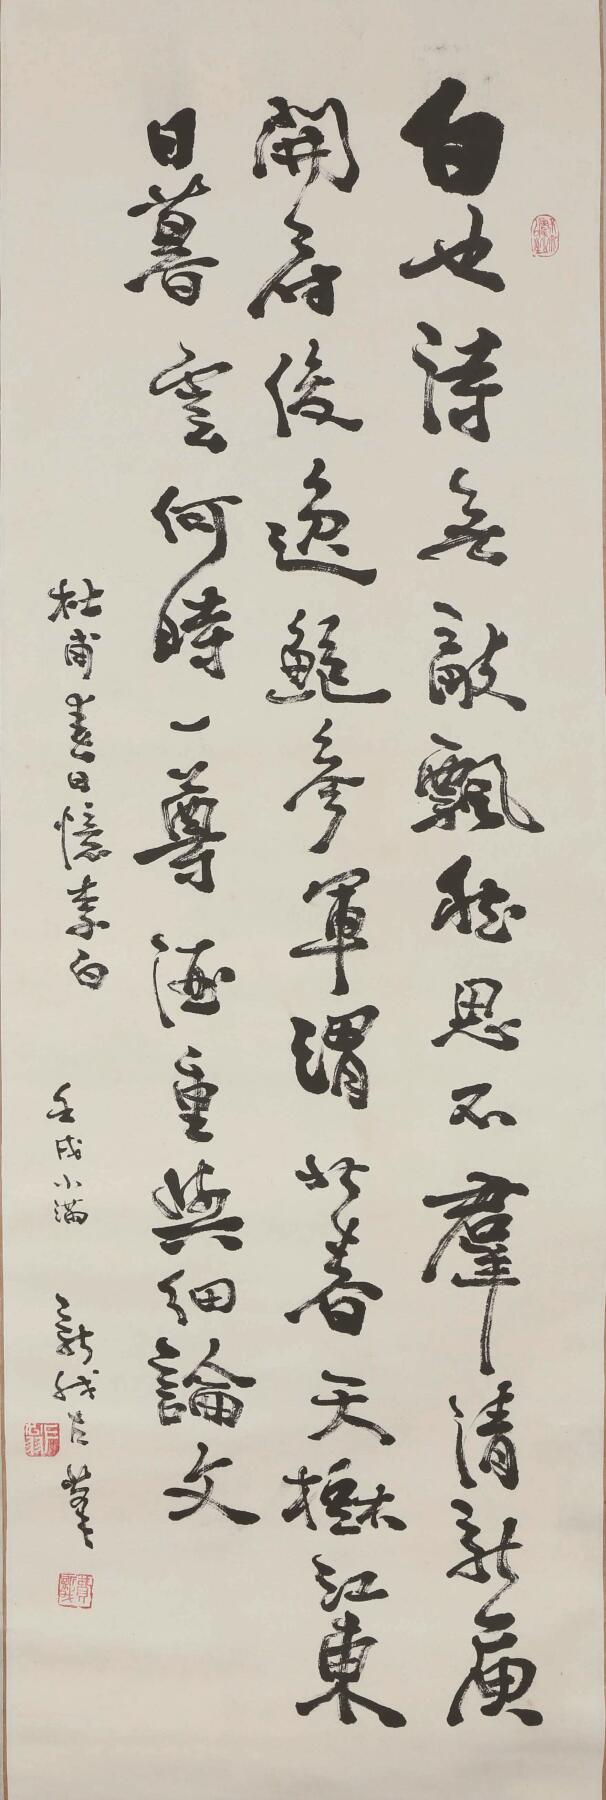 白也詩無敵飄然思不羣清新庾
開府俊逸鮑參軍渭北春天樹江東
日暮雲何時一尊酒重與細論文
杜甫春日憶李白
壬戌小滿